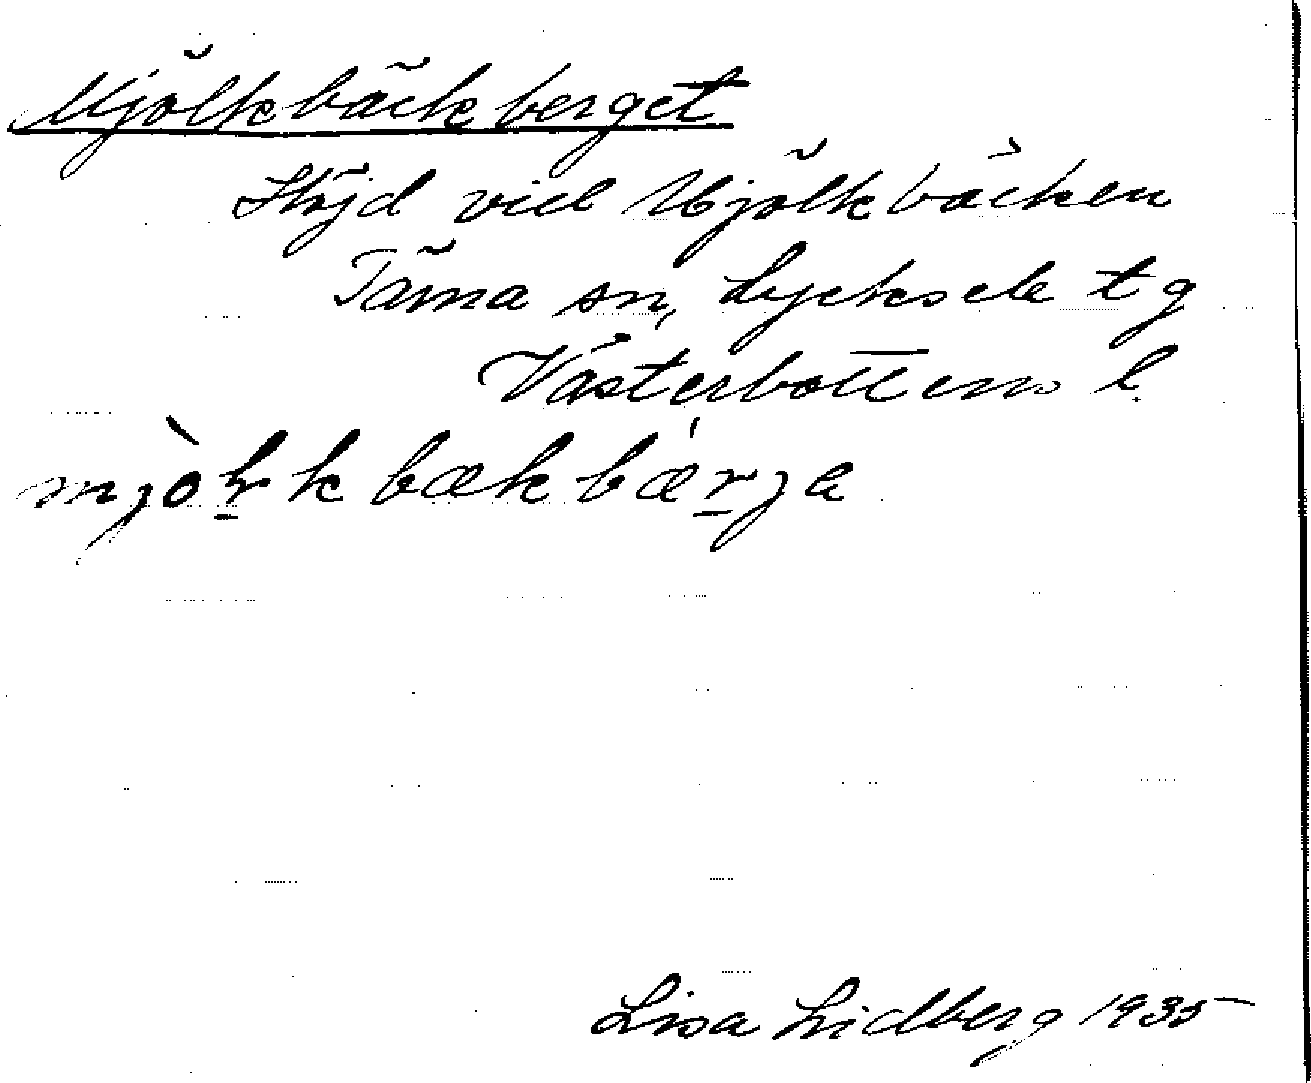 Mjölkbäckberget
Höjd vid Mjölkbäcken
Tärna sn, Lycksele tg
Västerbottens l.
mjòłkbækbæ̀rja
Lisa Lidberg 1935